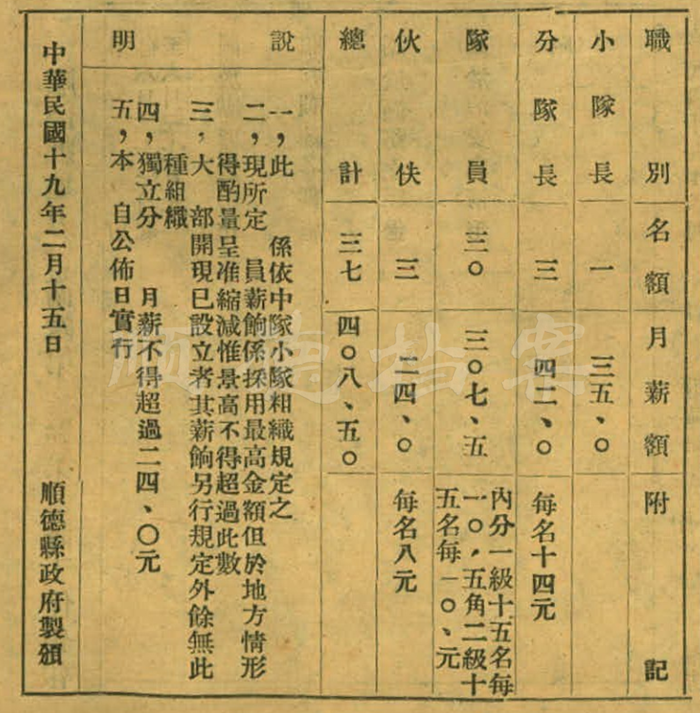 職別 名額 月薪額 附記
小隊長 一 三五、〇
分隊長 三 四二、〇 每名十四元
隊員 三〇 三〇七、五 內分一級十五名每
一〇,五角二級十
五名每一〇、元
伙伕 三 二四、〇 每名八元
總計 三七 四〇八、五〇
說明
一,此 係依中隊小隊組織規定之
二,現所定 員薪餉係採用最高金額但於地方情形
得酌量呈准縮減惟景高不得超過此數
三,大 部開現已設立者其薪餉另行規定外餘無此
種組織
四,獨立分 月薪不得超過二四、〇元
五,本 自公佈日實行
中華民國十九年二月十五日 順德縣政府製頒
順德档案